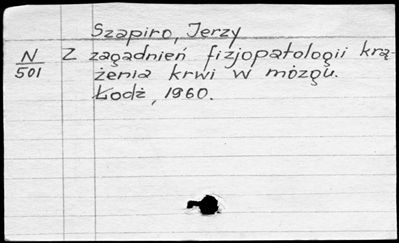 Szapiro, Jerzy
N Z zagadnień fizjopatologii krą-
501 żenia krwi w mózgu.
Łódź, 1960.